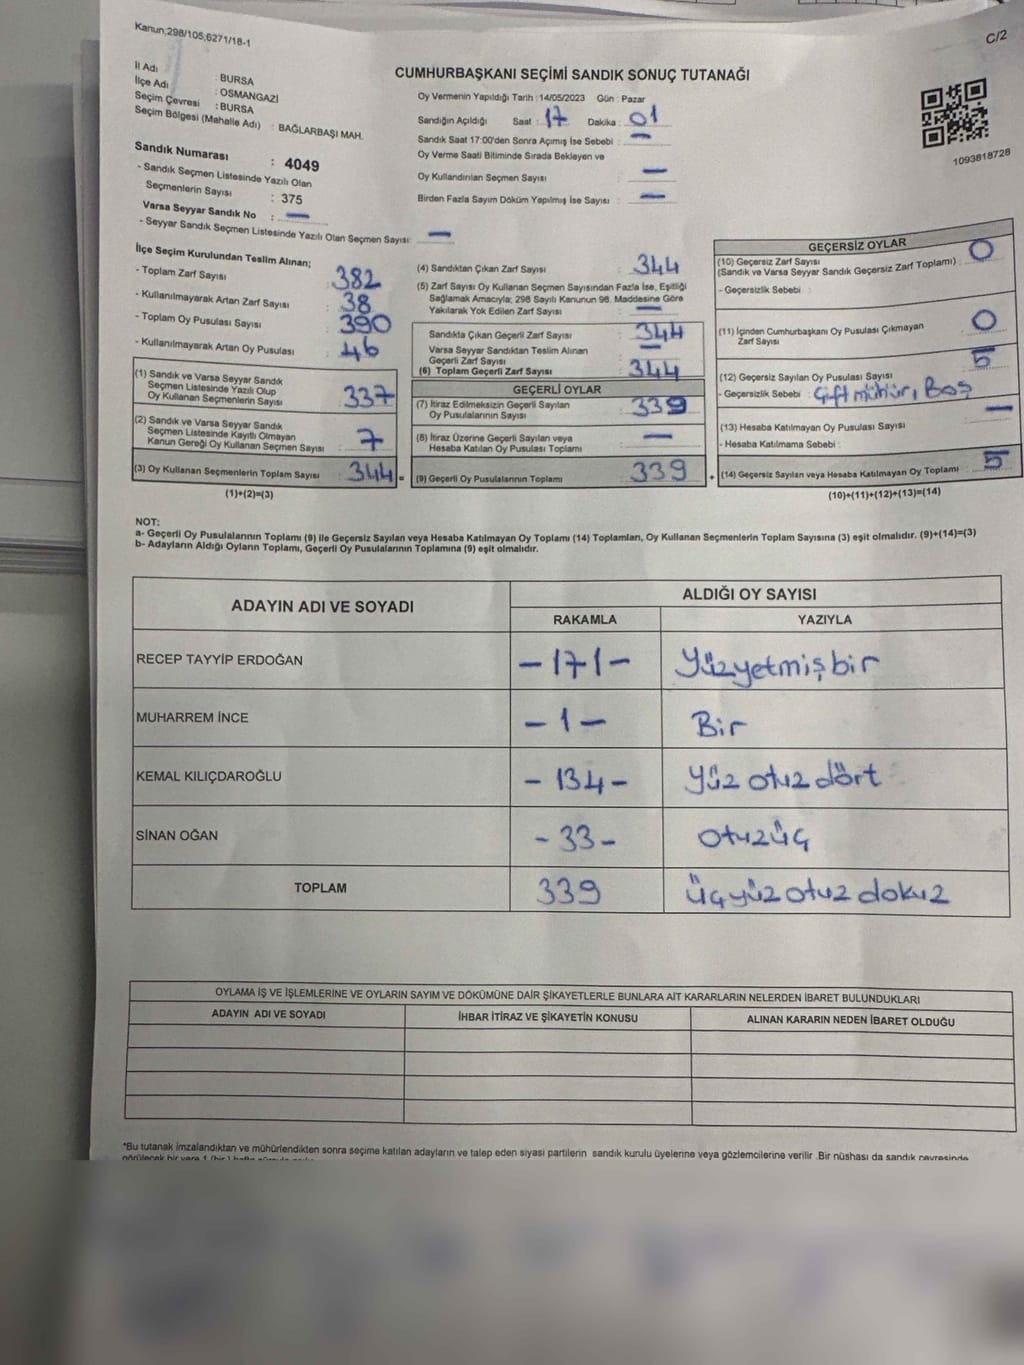 Kanun;298/105;6271/18-1
C/2
İl Adı : BURSA
İlçe Adı : OSMANGAZİ
Seçim Çevresi : BURSA
Seçim Bölgesi (Mahalle Adı) : BAĞLARBAŞI MAH.
Sandık Numarası : 4049
- Sandık Seçmen Listesinde Yazılı Olan
Seçmenlerin Sayısı : 375
Varsa Seyyar Sandık No : —
- Seyyar Sandık Seçmen Listesinde Yazılı Olan Seçmen Sayısı: —
CUMHURBAŞKANI SEÇİMİ SANDIK SONUÇ TUTANAĞI
Oy Vermenin Yapıldığı Tarih : 14/05/2023 Gün : Pazar
Sandığın Açıldığı Saat : 17 Dakika : 01
Sandık Saat 17:00'den Sonra Açımış İse Sebebi : —
Oy Verme Saati Bitiminde Sırada Bekleyen ve
Oy Kullandırılan Seçmen Sayısı : —
Birden Fazla Sayım Döküm Yapılmış İse Sayısı : —
1093818728
İlçe Seçim Kurulundan Teslim Alınan;
- Toplam Zarf Sayısı : 382
- Kullanılmayarak Artan Zarf Sayısı : 38
- Toplam Oy Pusulası Sayısı : 390
- Kullanılmayarak Artan Oy Pusulası : 46
(1) Sandık ve Varsa Seyyar Sandık
Seçmen Listesinde Yazılı Olup
Oy Kullanan Seçmenlerin Sayısı : 337
(2) Sandık ve Varsa Seyyar Sandık
Seçmen Listesinde Kayıtlı Olmayan
Kanun Gereği Oy Kullanan Seçmen Sayısı : 7
(3) Oy Kullanan Seçmenlerin Toplam Sayısı : 344 =
(1)+(2)=(3)
(4) Sandıktan Çıkan Zarf Sayısı : 344
(5) Zarf Sayısı Oy Kullanan Seçmen Sayısından Fazla İse, Eşitliği
Sağlamak Amacıyla; 298 Sayılı Kanunun 98. Maddesine Göre
Yakılarak Yok Edilen Zarf Sayısı : —
Sandıkta Çıkan Geçerli Zarf Sayısı : 344
Varsa Seyyar Sandıktan Teslim Alınan
Geçerli Zarf Sayısı : —
(6) Toplam Geçerli Zarf Sayısı : 344
GEÇERLİ OYLAR
(7) İtiraz Edilmeksizin Geçerli Sayılan
Oy Pusulalarının Sayısı : 339
(8) İtiraz Üzerine Geçerli Sayılan veya
Hesaba Katılan Oy Pusulası Toplamı : —
(9) Geçerli Oy Pusulalarının Toplamı : 339 +
GEÇERSİZ OYLAR
(10) Geçersiz Zarf Sayısı
(Sandık ve Varsa Seyyar Sandık Geçersiz Zarf Toplamı) : 0
- Geçersizlik Sebebi :
(11) İçinden Cumhurbaşkanı Oy Pusulası Çıkmayan
Zarf Sayısı : 0
(12) Geçersiz Sayılan Oy Pusulası Sayısı 5
- Geçersizlik Sebebi : Çift mühür, Boş
(13) Hesaba Katılmayan Oy Pusulası Sayısı —
- Hesaba Katılmama Sebebi :
(14) Geçersiz Sayılan veya Hesaba Katılmayan Oy Toplamı : 5
(10)+(11)+(12)+(13)=(14)
NOT:
a- Geçerli Oy Pusulalarının Toplamı (9) ile Geçersiz Sayılan veya Hesaba Katılmayan Oy Toplamı (14) Toplamları, Oy Kullanan Seçmenlerin Toplam Sayısına (3) eşit olmalıdır. (9)+(14)=(3)
b- Adayların Aldığı Oyların Toplamı, Geçerli Oy Pusulalarının Toplamına (9) eşit olmalıdır.
ADAYIN ADI VE SOYADI ALDIĞI OY SAYISI
RAKAMLA YAZIYLA
RECEP TAYYİP ERDOĞAN -171- Yüzyetmişbir
MUHARREM İNCE -1- Bir
KEMAL KILIÇDAROĞLU -134- Yüz otuz dört
SİNAN OĞAN -33- Otuzüç
TOPLAM 339 Üçyüz otuz dokuz
OYLAMA İŞ VE İŞLEMLERİNE VE OYLARIN SAYIM VE DÖKÜMÜNE DAİR ŞİKAYETLERLE BUNLARA AİT KARARLARIN NELERDEN İBARET BULUNDUKLARI
ADAYIN ADI VE SOYADI İHBAR İTİRAZ VE ŞİKAYETİN KONUSU ALINAN KARARIN NEDEN İBARET OLDUĞU
*Bu tutanak imzalandıktan ve mühürlendikten sonra seçime katılan adayların ve talep eden siyasi partilerin sandık kurulu üyelerine veya gözlemcilerine verilir .Bir nüshası da sandık çevresinde